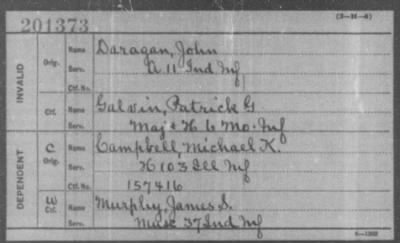 (3—H—6)
201373
INVALID
Orig. Name Daragan, John
Serv. A 11 Ind Inf
Ctf. No.
Ctf. Name Galvin, Patrick G.
Serv. Maj & H 6 Mo. Inf
DEPENDENT
C. Orig. Name Campbell, Michael K.
Serv. H 103 Ill Inf
Ctf. No. 157416
W Ctf. Name Murphy, James S.
Serv. Musc 37 Ind Inf